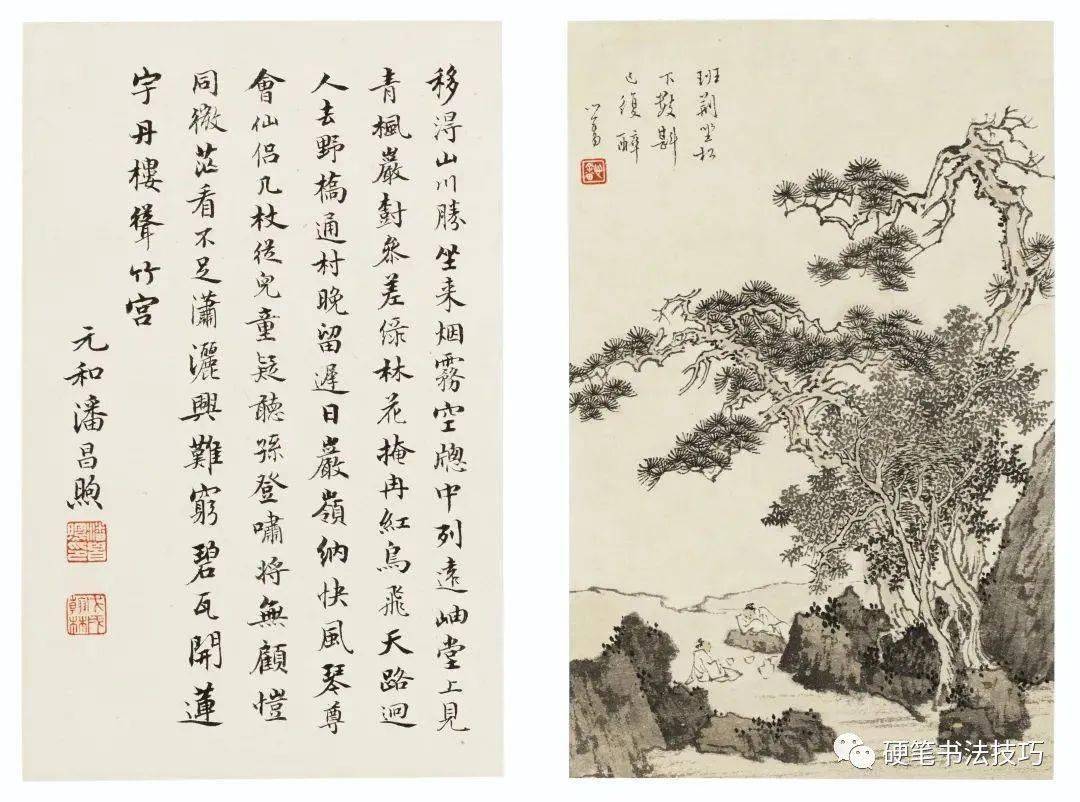 移淂山川勝坐来烟霧空牕中列遠岫堂上見
青楓巖對參差緑林花掩冉紅鳥飛天路迥
人去野橋通村晚留遲日巖嶺納快風琴尊
會仙侣几杖從兒童疑聽孫登嘯將無顧愷
同微茫看不足瀟灑興難窮碧瓦開蓮
宇丹樓聳竹宫
元和潘昌煦
班荆坐松
下數斟
已復醉
心畬
硬笔书法技巧